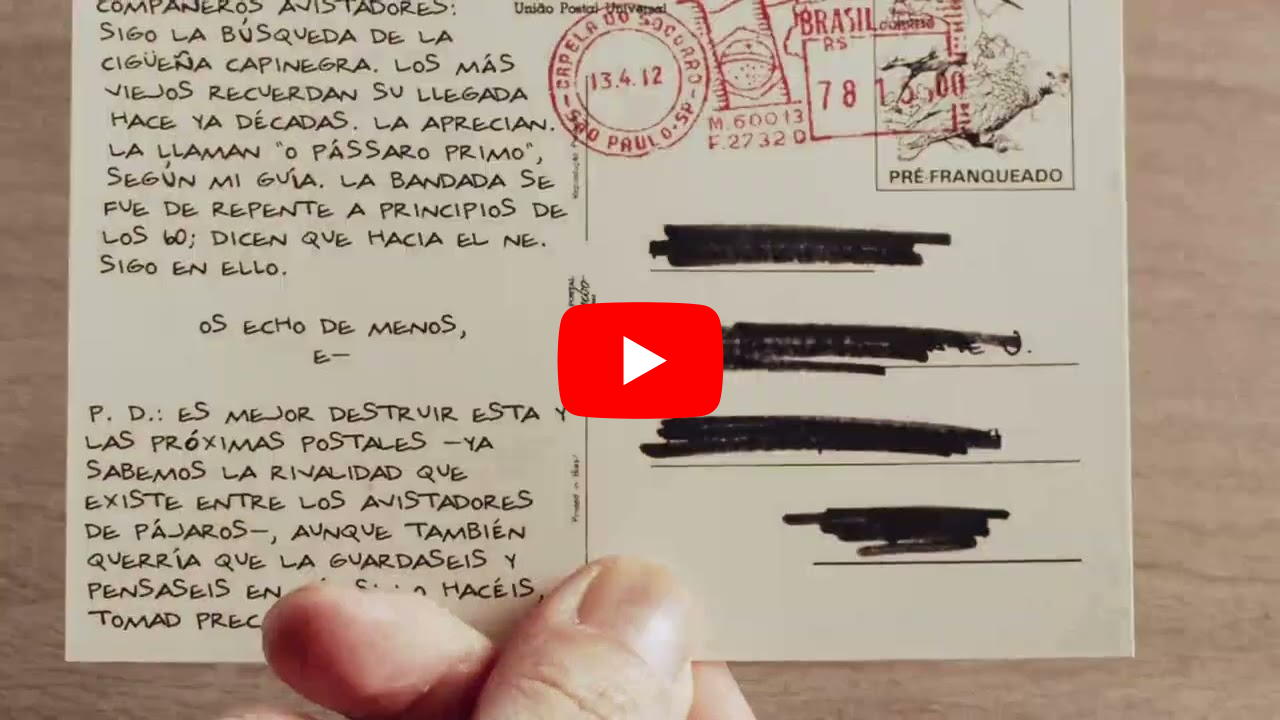 COMPAÑEROS AVISTADORES:
SIGO LA BÚSQUEDA DE LA
CIGÜEÑA CAPINEGRA. LOS MÁS
VIEJOS RECUERDAN SU LLEGADA
HACE YA DÉCADAS. LA APRECIAN.
LA LLAMAN "O PÁSSARO PRIMO",
SEGÚN MI GUÍA. LA BANDADA SE
FUE DE REPENTE A PRINCIPIOS DE
LOS 60; DICEN QUE HACIA EL NE.
SIGO EN ELLO.
OS ECHO DE MENOS,
E—
P. D.: ES MEJOR DESTRUIR ESTA Y
LAS PRÓXIMAS POSTALES —YA
SABEMOS LA RIVALIDAD QUE
EXISTE ENTRE LOS AVISTADORES
DE PÁJAROS—, AUNQUE TAMBIÉN
QUERRÍA QUE LA GUARDASEIS Y
PENSASEIS EN HACÉIS,
TOMAD
União Postal Universal
CAPELA DO SOCORRO
13.4.12
SÃO PAULO-SP
BRASIL
R$
78
M.60013
F.27320
PRÉ-FRANQUEADO